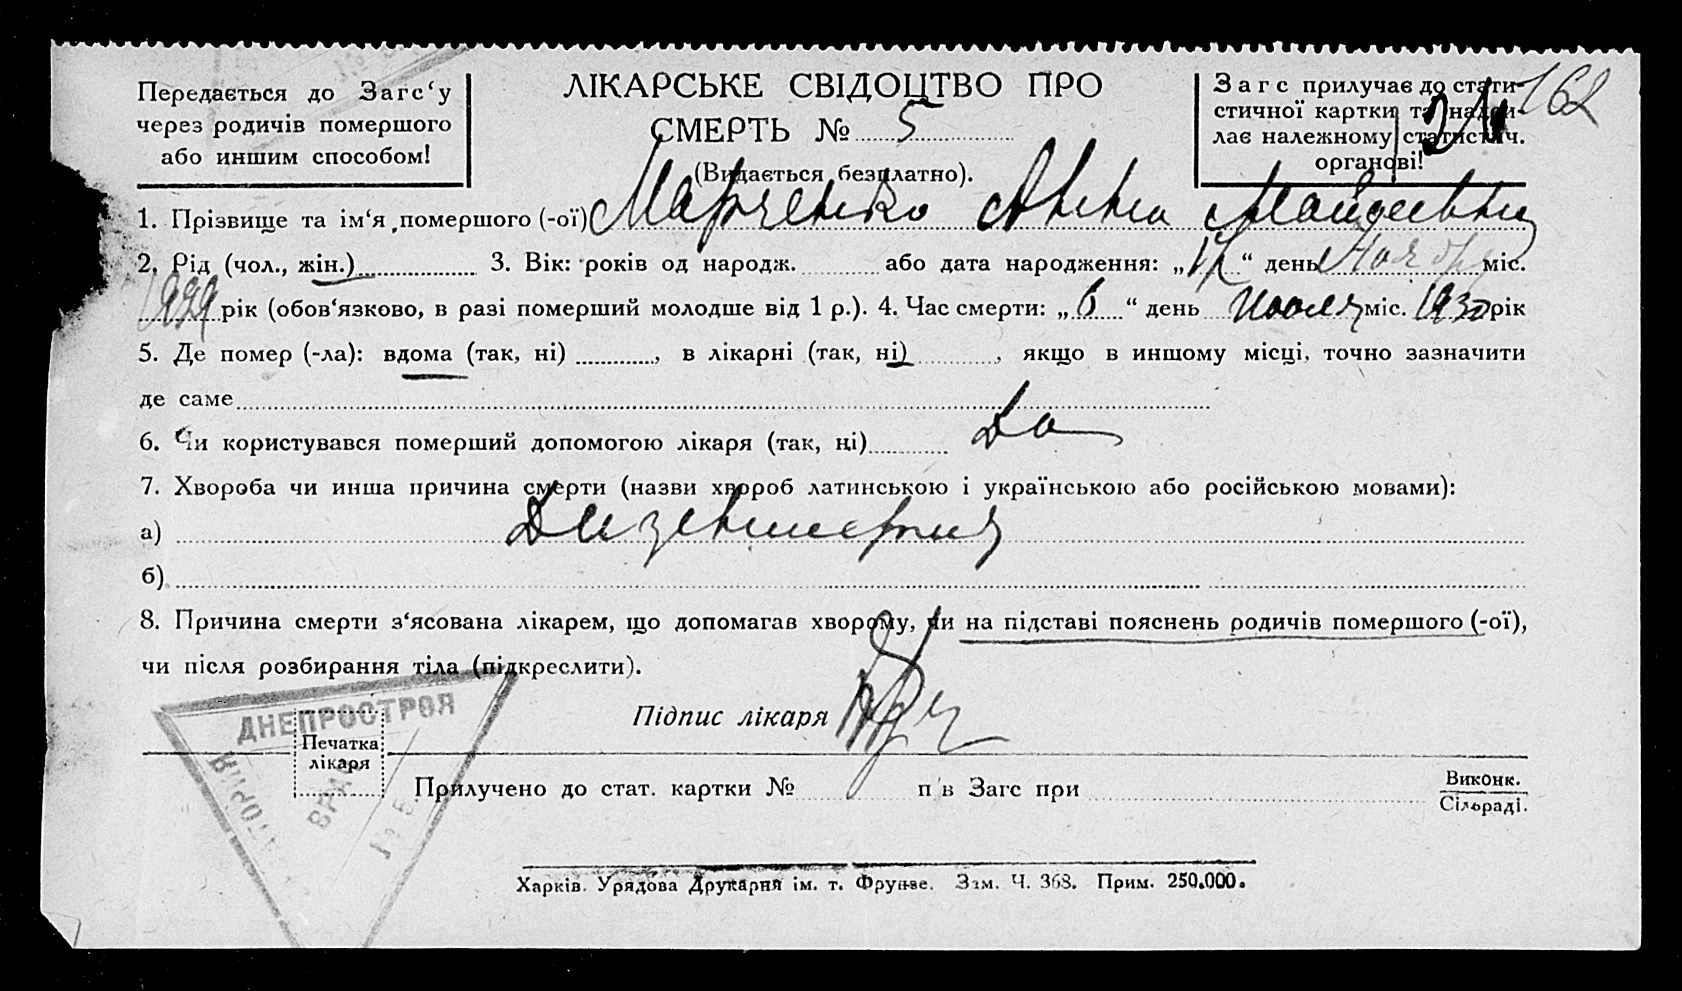 Передається до Загс‘у
через родичів помершого
або иншим способом!
ЛІКАРСЬКЕ СВІДОЦТВО ПРО
СМЕРТЬ № 5
(Видається безплатно).
Загс прилучає до стати-
стичної картки та надси-
лає належному статистич.
органові!
162
21
1. Прізвище та ім‘я помершого (-ої) Марченко Анна
2. Рід (чол., жін.) 3. Вік: років од народж. або дата народження: „17“ день Ноября міс.
1929 рік (обов‘язково, в разі померший молодше від 1 р.). 4. Час смерти: „6“ день Июля міс. 1930 рік
5. Де помер (-ла): вдома (так, ні) , в лікарні (так, ні) , якщо в иншому місці, точно зазначити
де саме
6. Чи користувався померший допомогою лікаря (так, ні) Да
7. Хвороба чи инша причина смерти (назви хвороб латинською і українською або російською мовами):
а) Дизентерия
б)
8. Причина смерти з‘ясована лікарем, що допомагав хворому, чи на підставі пояснень родичів помершого (-ої),
чи після розбирання тіла (підкреслити).
ДНЕПРОСТРОЯ
ВРАЧ
Підпис лікаря
Печатка
лікаря
Прилучено до стат. картки № п в Загс при
Виконк.
Сільраді.
Харків. Урядова Друкарня ім. т. Фрунзе. Зам. Ч. 368. Прим. 250.000.